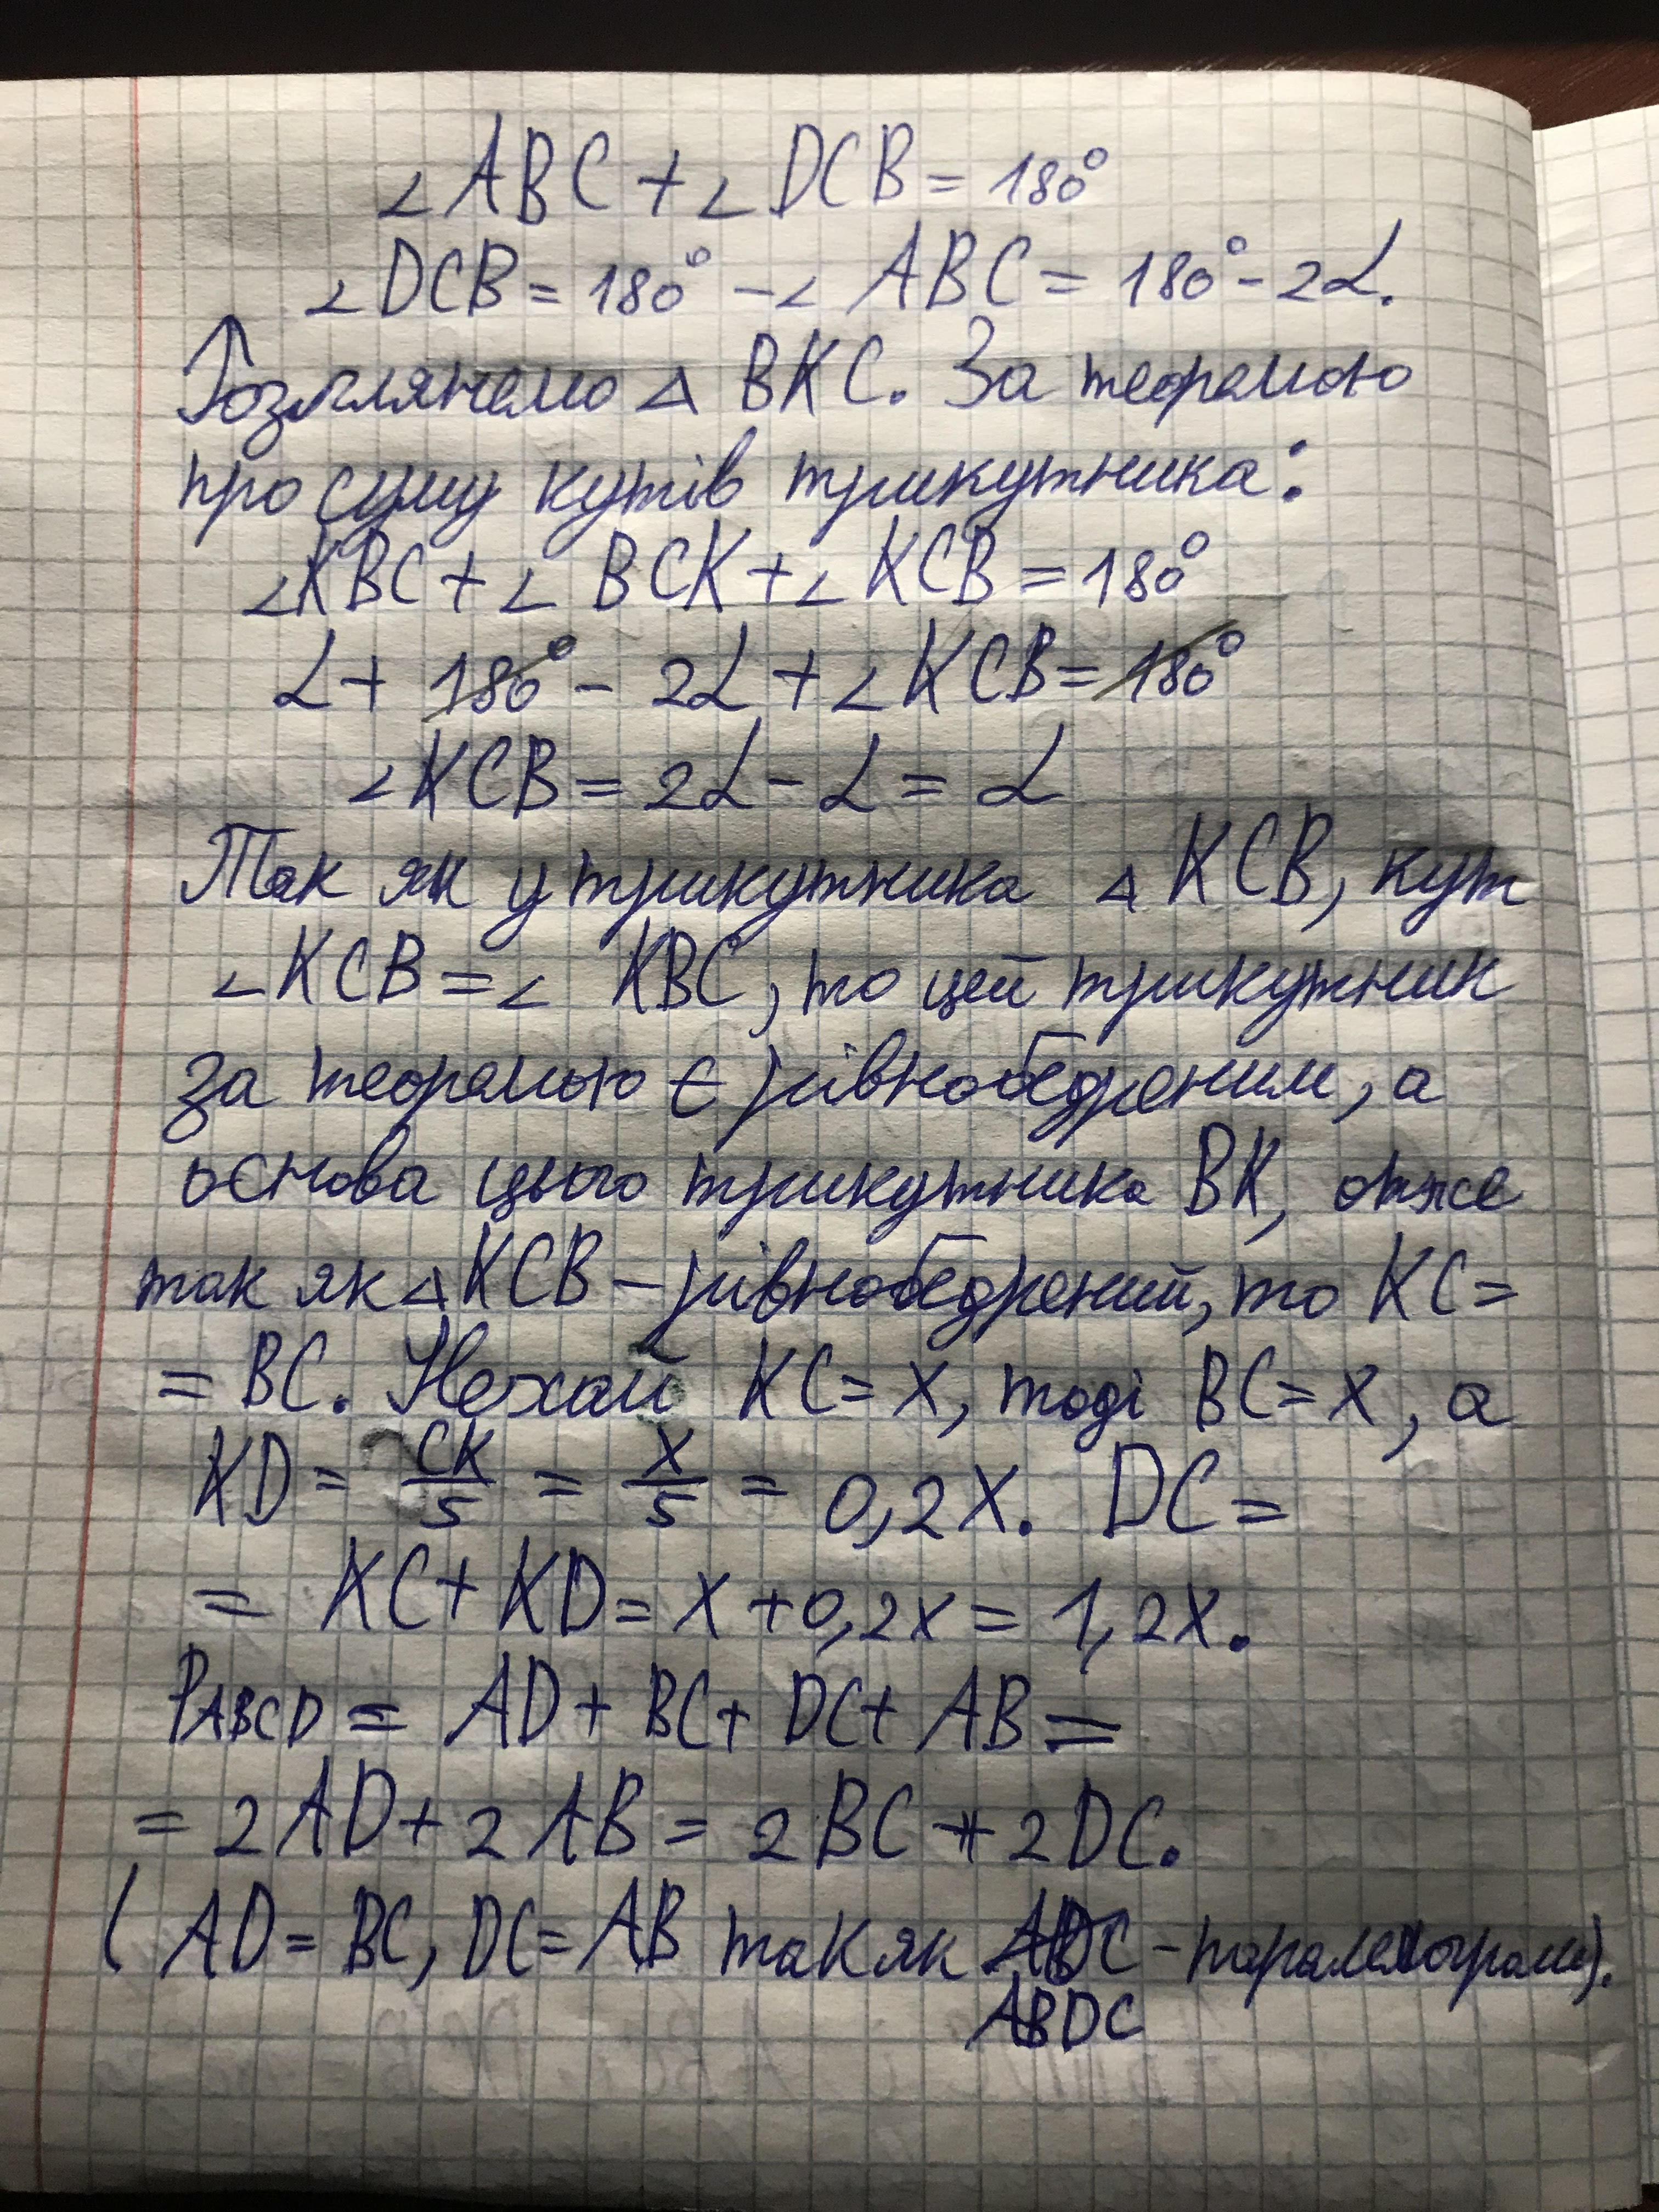 ∠ABC + ∠DCB = 180°
∠DCB = 180° - ∠ABC = 180° - 2α.
Розглянемо △ BKC. За теоремою
про суму кутів трикутника:
∠KBC + ∠BCK + ∠KCB = 180°
α + 180° - 2α + ∠KCB = 180°
∠KCB = 2α - α = α
Так як у трикутника △ KCB, кут
∠KCB = ∠KBC, то цей трикутник
за теоремою є рівнобедреним, а
основа цього трикутника BK, отже
так як △KCB – рівнобедрений, то KC =
= BC. Нехай KC = x, тоді BC = x, а
KD = CK/5 = x/5 = 0,2x. DC =
= KC + KD = x + 0,2x = 1,2x.
PABCD = AD + BC + DC + AB =
= 2AD + 2AB = 2BC + 2DC.
(AD = BC, DC = AB так як - паралелограм).
ABDC